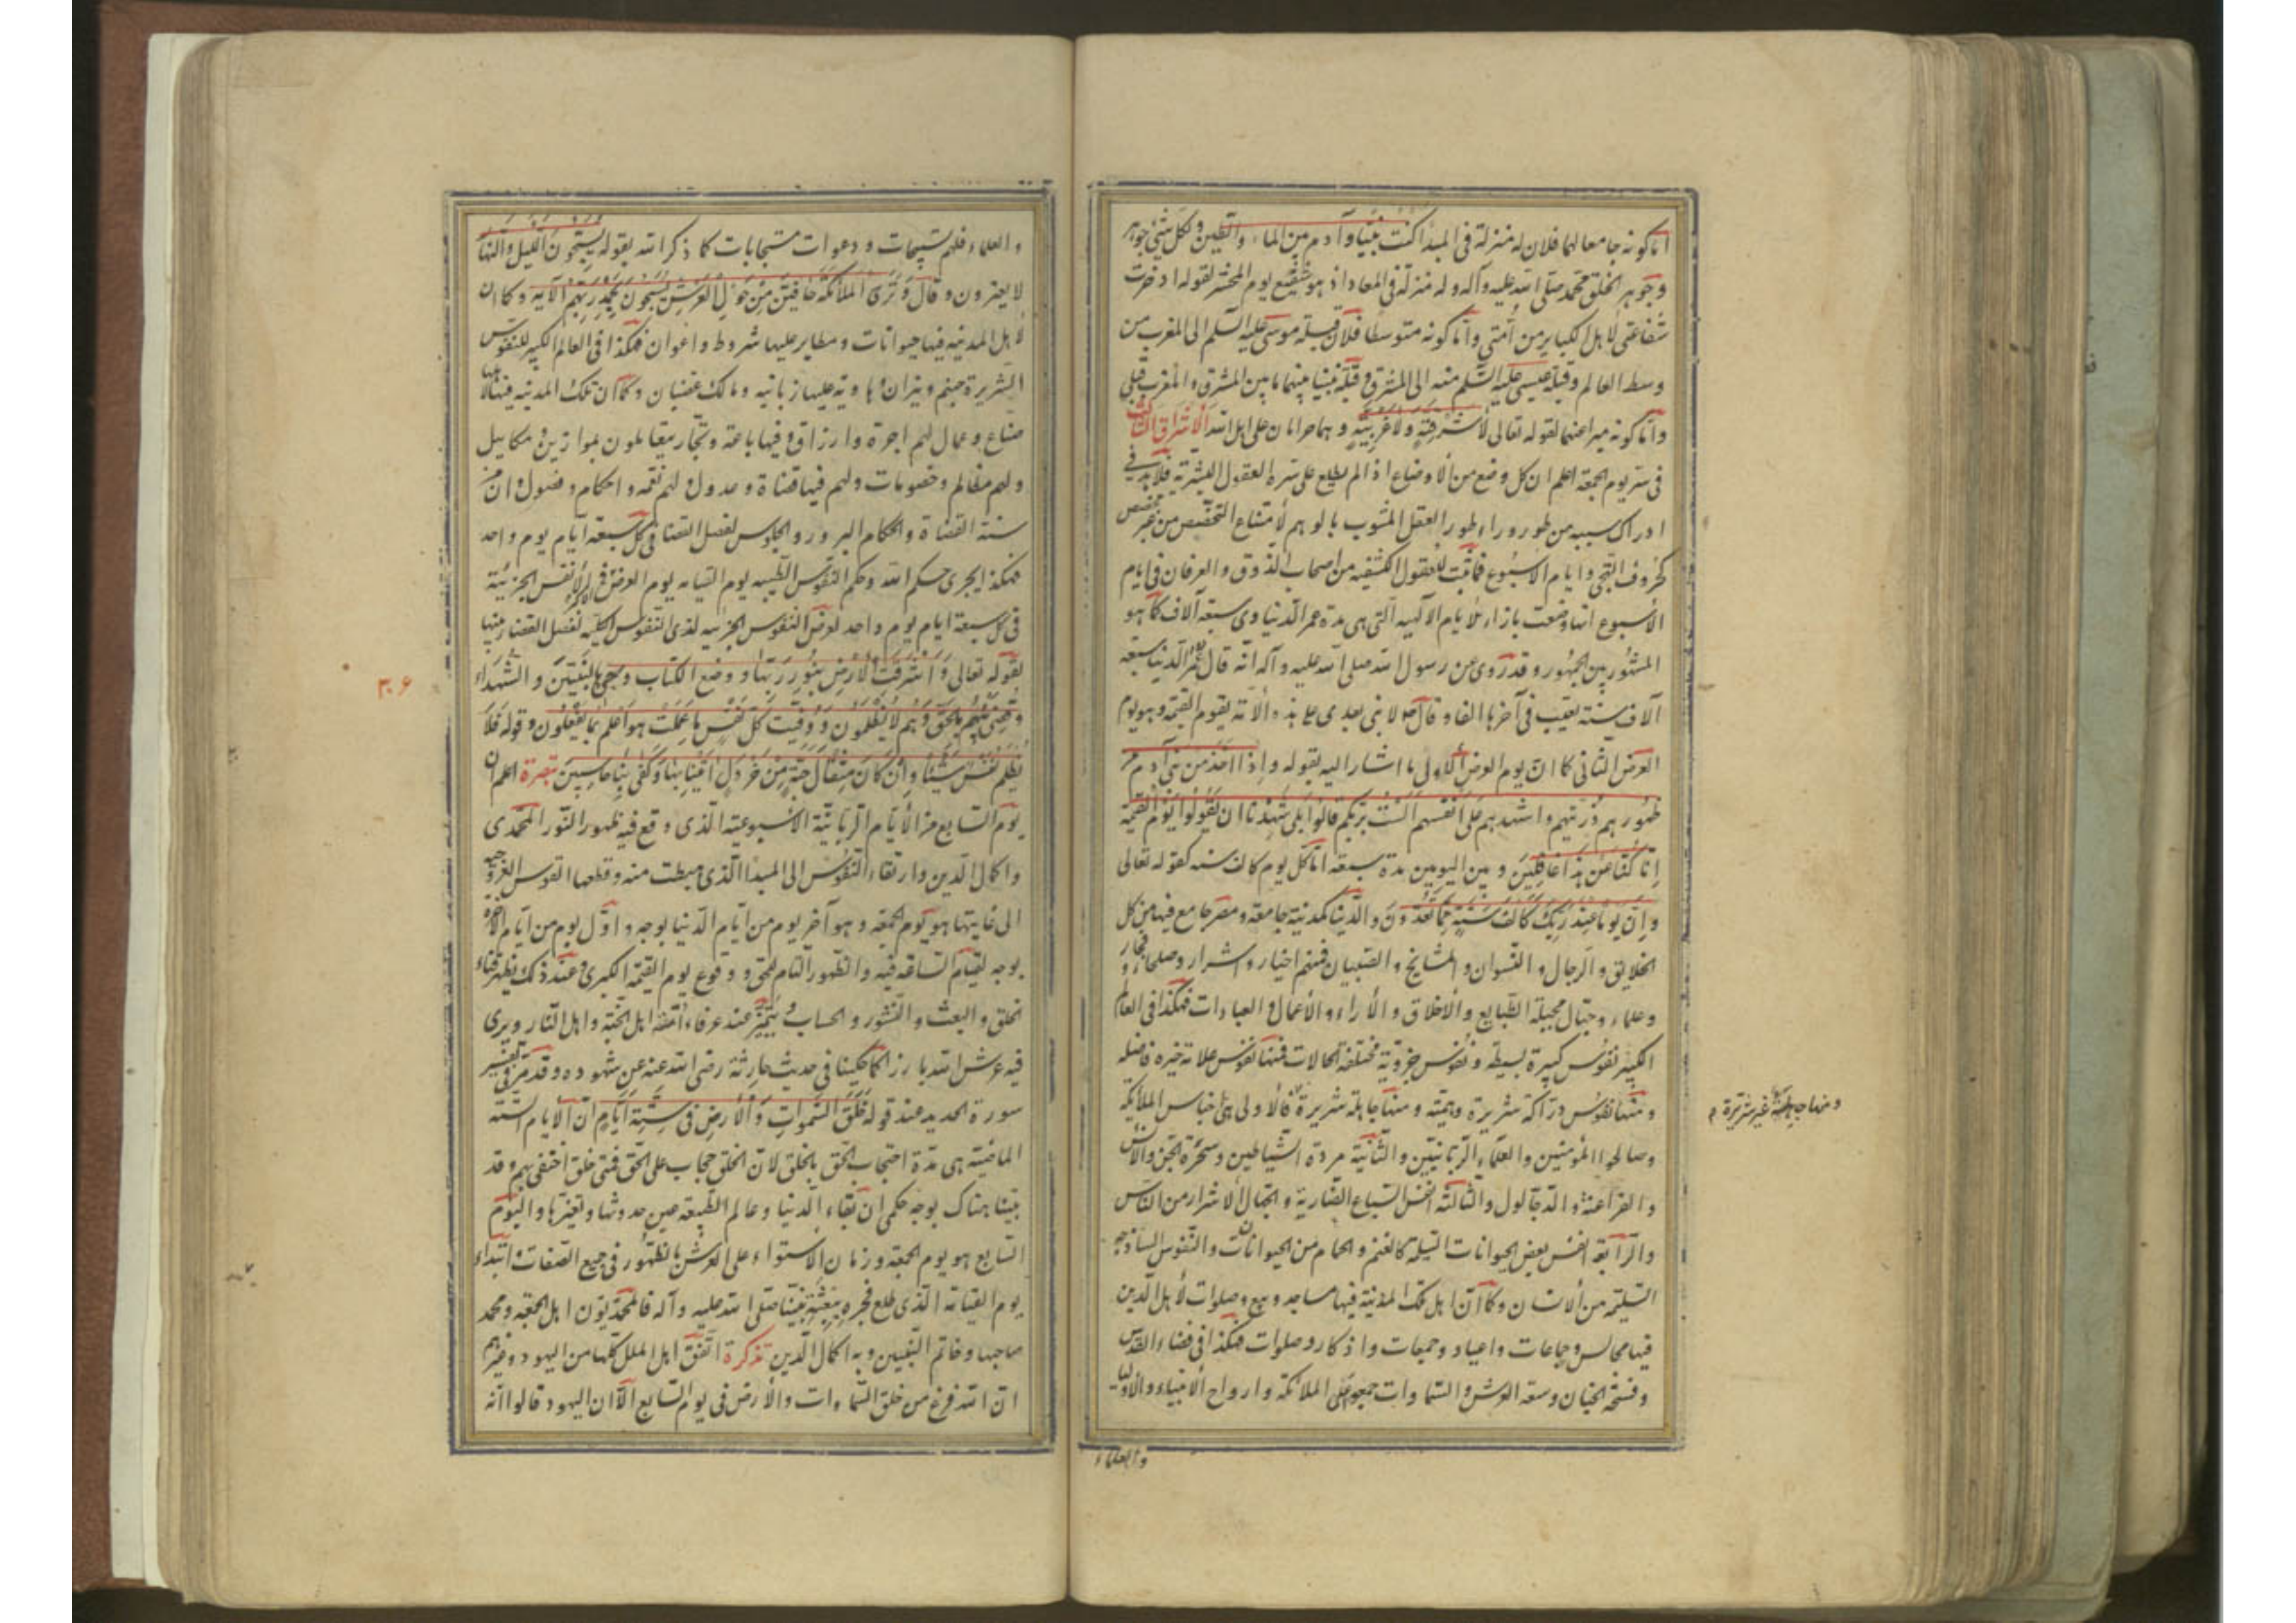 اما كونه جامعا لهما فلان له منزلة فى المبدأ كنت نبيا وآدم بين الماء والطين ولكل شئ جوهر
وجوهر الخلق محمد صلى الله عليه وآله وله منزلة فى المعاد اذ هو شفيع يوم المحشر لقوله ادخرت
شفاعتى لاهل الكباير من أمتى واما كونه متوسطا فلان قبلة موسى عليه السلم الى المغرب من
وسط العالم وقبلة عيسى عليه السلم منه الى المشرق وقبلة نبينا بينهما ما بين المشرق والمغرب قبلتى
واما كونه مبرا عنهما لقوله تعالى لا شرقية ولا غربية وهما حرامان على اهل الله الاشراق الثالث
فى سر يوم الجمعة اعلم ان كل وضع من الاوضاع اذا لم يطلع على سره العقول البشرية فلا بد فى
ادراك سببه من طور وراء طور العقل المشوب بالوهم لامتناع التخصص من غير مخصص
كحروف التهجى وايام الاسبوع فثبت للعقول الكشفيه من اصحاب الذوق والعرفان فى ايام
الأسبوع انها وضعت بازاء الايام الآلهيه التى هى مدة عمر الدنيا وهى سبعة آلاف كما هو
المشهور بين الجمهور وقد روى عن رسول الله صلى الله عليه وآله انه قال عمر الدنيا سبعة
آلاف سنة بعثت فى آخرها الفا وقال ص لا نبى بعدى على هذه الامة يقوم القيمة وهو يوم
العرض الثانى كما ان يوم العرض الاول ما اشار اليه بقوله واذ اخذ من بنى آدم من
ظهورهم ذريتهم واشهدهم على انفسهم الست بربكم قالوا بلى شهدنا ان تقولوا يوم القيمة
إنا كنا عن هذا غافلين وبين اليومين مدة سبعة ايام كل يوم كالف سنه كقوله تعالى
وإن يوما عند ربك كألف سنة مما تعدون والدنيا كمدينة جامعة ومصر جامع فيها من كل
الخلايق والرجال والنسوان والمشايخ والصبيان فمنهم اخيار واشرار وصلحاء وفجار
وعلماء وجهال مجبلة الطبايع والاخلاق والأراء والأعمال والعبادات فهكذا فى العالم
الكبير نفوس كبيرة بسيطة ونفوس جزوية مختلفة الحالات فمنها نفوس علامة خيره فاضله
ومنها نفوس دراكة شريرة وهمية ومنها جاهلة شريرة فالاولى هى اجناس الملائكة
ومنها جاهلة غير شريرة م
وصالحوا المؤمنين والعلماء الربانيين والثانية مردة الشياطين وسحرة الجن والانس
والفراعنة والدجالون والثالثة انفس السباع الضارية والجهال الاشرار من الناس
والرابعة انفس بعض الحيوانات السليمة كالغنم والحمام من الحيوانات والنفوس الساذجه
السليمة من الانسان وكما ان اهل تلك المدينة فيها مساجد وبيع وصلوات لأهل الدين
فيها مجالس وجماعات واعياد وجمعات واذكار وصلوات فهكذا فى فضاء القدس
وفسحة الجنان وسعة العرش والسماوات جمعه على الملائكة وارواح الانبياء والاوليا
والعلماء
والعلماء فلهم تسبيحات ودعوات مستجابات كما ذكر الله بقوله يسبحون الليل والنهار
لا يفترون وقال وترى الملائكة حافين من حول العرش يسبحون بحمد ربهم الآيه وكما ان
لاهل المدينة فيها حيوانات ومطاير عليها شروط واعوان فهكذا فى العالم الكبير للنفوس
الشريرة جهنم ونيران وهاوية عليها زبانيه ومالك غضبان وكما ان تلك المدينه فيها لأهلها
صناع وعمال لهم اجرة وارزاق وفيها باعة وتجار يتعاملون بموازين ومكاييل
ولهم مظالم وخصومات ولهم فيها قضاة وعدول ولهم فقه واحكام وفصول وان من
سنة القضاة والحكام البروز والجلوس لفصل القضا فى كل سبعة ايام يوم واحد
فهكذا يجرى حكم الله وحكم النفوس الطيبه يوم القيامه يوم العرض الاكبر فى الانفس الجزئية
فى كل سبعة ايام يوم واحد لعرض النفوس الجزئيه لدى النفوس الكليه لفصل القضاء بينها
لقوله تعالى وأشرقت الأرض بنور ربها ووضع الكتاب وجئ بالنبيين والشهداء
٣٠۶
وقضى بينهم بالحق وهم لا يظلمون ووفيت كل نفس ما عملت هو اعلم بما يفعلون وقوله فلا
تظلم نفس شيئا وإن كان مثقال حبة من خردل أتينا بها وكفى بنا حاسبين تبصرة اعلم ان
يوم السابع من الأيام الربانية الاسبوعية الذى وقع فيه ظهور النور المحمدى
واكمال الدين وارتقاء النفوس الى المبدا الذى هبطت منه وقطعها القوس العروجيه
الى غايتها هو يوم الجمعه وهو آخر يوم من ايام الدنيا بوجه واول يوم من ايام الآخرة
بوجه لقيام الساعة فيه والظهور التام للحق ووقوع يوم القيمة الكبرى عند ذلك يظهر فناء
الخلق والبعث والنشور والحساب ويتميز عند عرفاء أمته اهل الجنة واهل النار ويرى
فيه عرش الله بارزا كما حكينا فى حديث حارثة رضى الله عنه عن شهوده وقد مر فى تفسير
سورة الحديد عند قوله خلق السموات والأرض فى ستة ايام ان الأيام الستة
الماضية هى مدة احتجاب الحق بالخلق لان الخلق حجاب على الحق فمتى خلق اختفى بهم وقد
بينا هناك بوجه حكمى ان بقاء الدنيا وعالم الطبيعة عين حدوثها وتغيرها واليوم
السابع هو يوم الجمعة وزمان الاستواء على العرش بالظهور فى جميع الصفات وابتداء
يوم القيامة الذى طلع فجره ببعثة نبينا صلى الله عليه وآله فالمحمديون اهل الجمعة ومحمد
صاحبها وخاتم النبيين وبه اكمال الدين تذكرة اتفق اهل الملل كلها من اليهود وغيرهم
ان الله فرغ من خلق السماوات والأرض فى يوم السابع الا ان اليهود قالوا انه